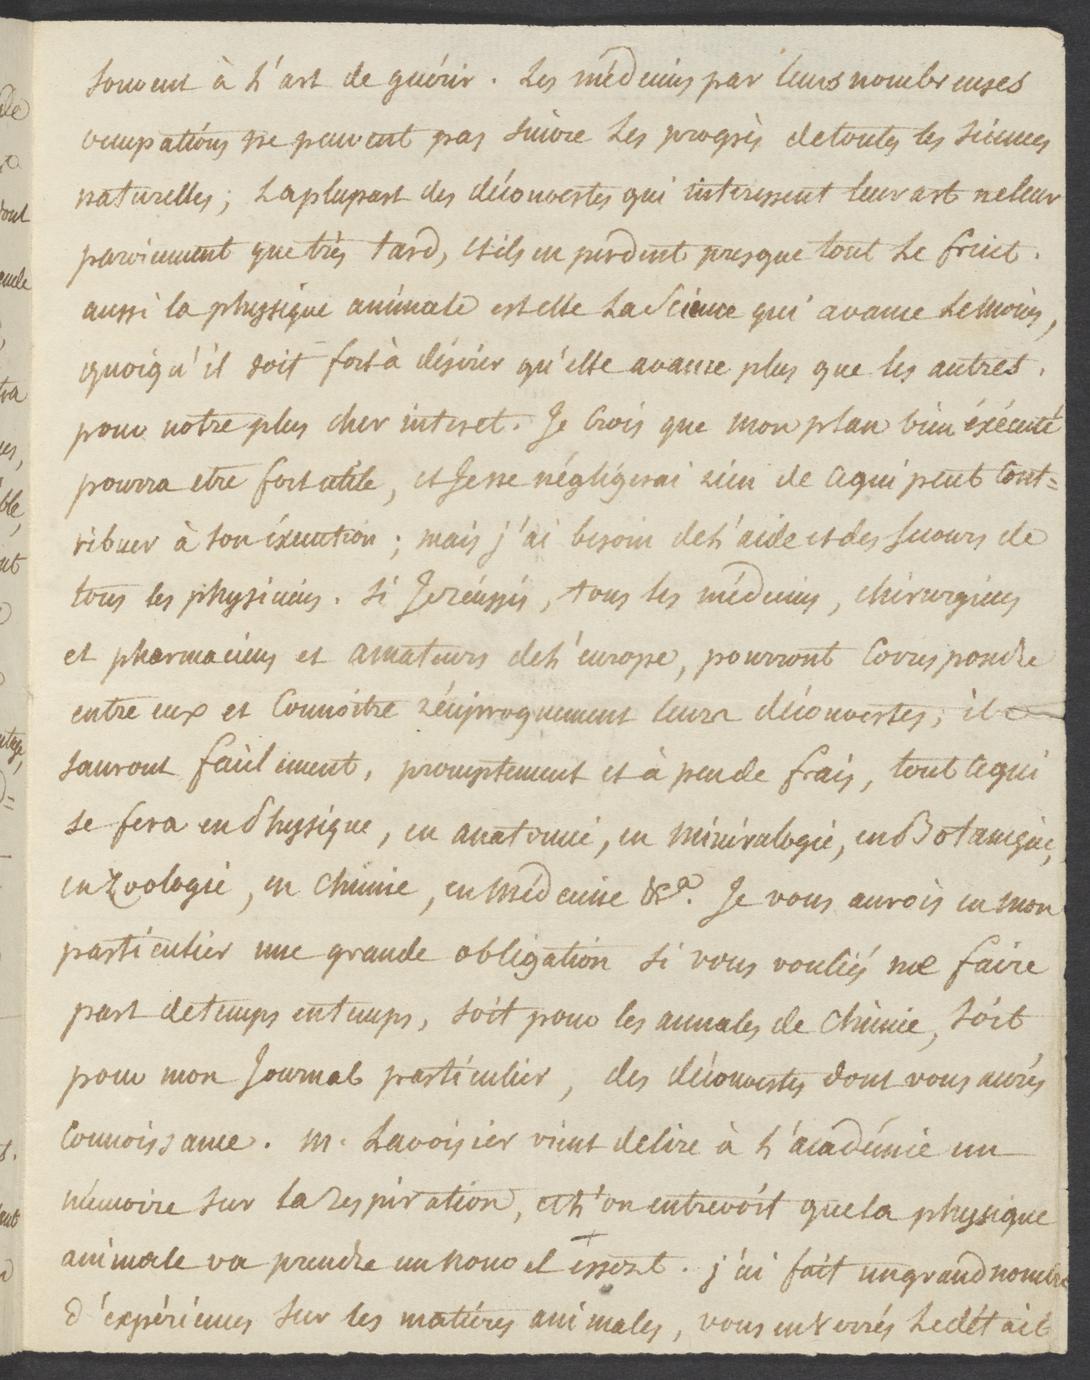 souvent à l'art de guérir. Les médecins par leurs nombreuses
occupations ne peuvent pas suivre les progrès de toutes les sciences
naturelles; La plupart des découvertes qui interessent leur art ne leur
parviennent que très tard, et ils en perdent presque tout le fruit.
aussi la physique animale est elle La Science qui avance le moins,
quoiqu'il soit fort à désirer qu'elle avance plus que les autres.
pour notre plus cher interet. Je crois que mon plan bien éxécuté
pourra etre fort utile, et Je ne négligerai rien de ce qui peut Cont=
ribuer à son éxecution; mais j'ai besoin de l'aide et des secours de
tous les physiciens. Si Je réussis, tous les médecins, chirurgiens
et pharmaciens et amateurs de l'europe, pourront Correspondre
entre eux et Connoitre réciproquement leurs découvertes; ils
sauront facilement, promptement et à peu de frais, tout ce qui
se fera en Physique, en anatomie, en minéralogie, en Botanique,
en Zoologie, en chimie, en médecine &ca. Je vous aurois en mon
particulier une grande obligation si vous vouliés me faire
part de temps en temps, soit pour les annales de chimie, soit
pour mon Journal particulier, des découvertes dont vous aurés
Connoissance. M. Lavoisier vient de lire à l'académie un
mémoire sur la Respiration, et l'on entrevoit que la physique
animale va prendre un nouvel essort. j'ai fait un grand nombre
d'expériences sur les matières animales, vous en verrés le détail